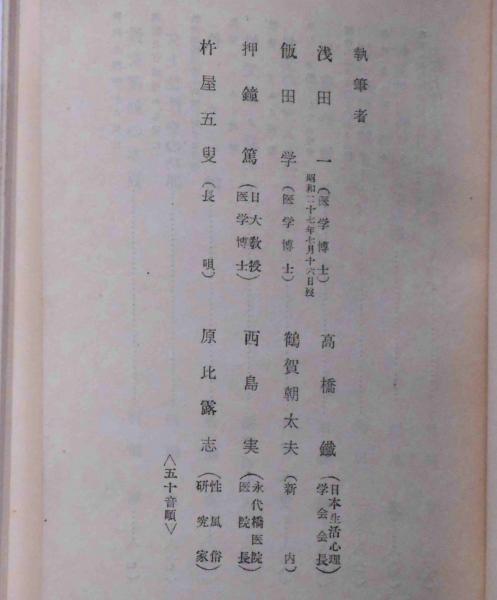 執筆者
浅田一（医学博士）
昭和二十七年七月十六日歿
飯田学（医学博士）
押鐘篤（日大教授 医学博士）
杵屋五叟（長唄）
高橋鐵（日本生活心理学会会長）
鶴賀朝太夫（新内）
西島実（永代橋医院医院長）
原比露志（性風俗研究家）
〈五十音順〉